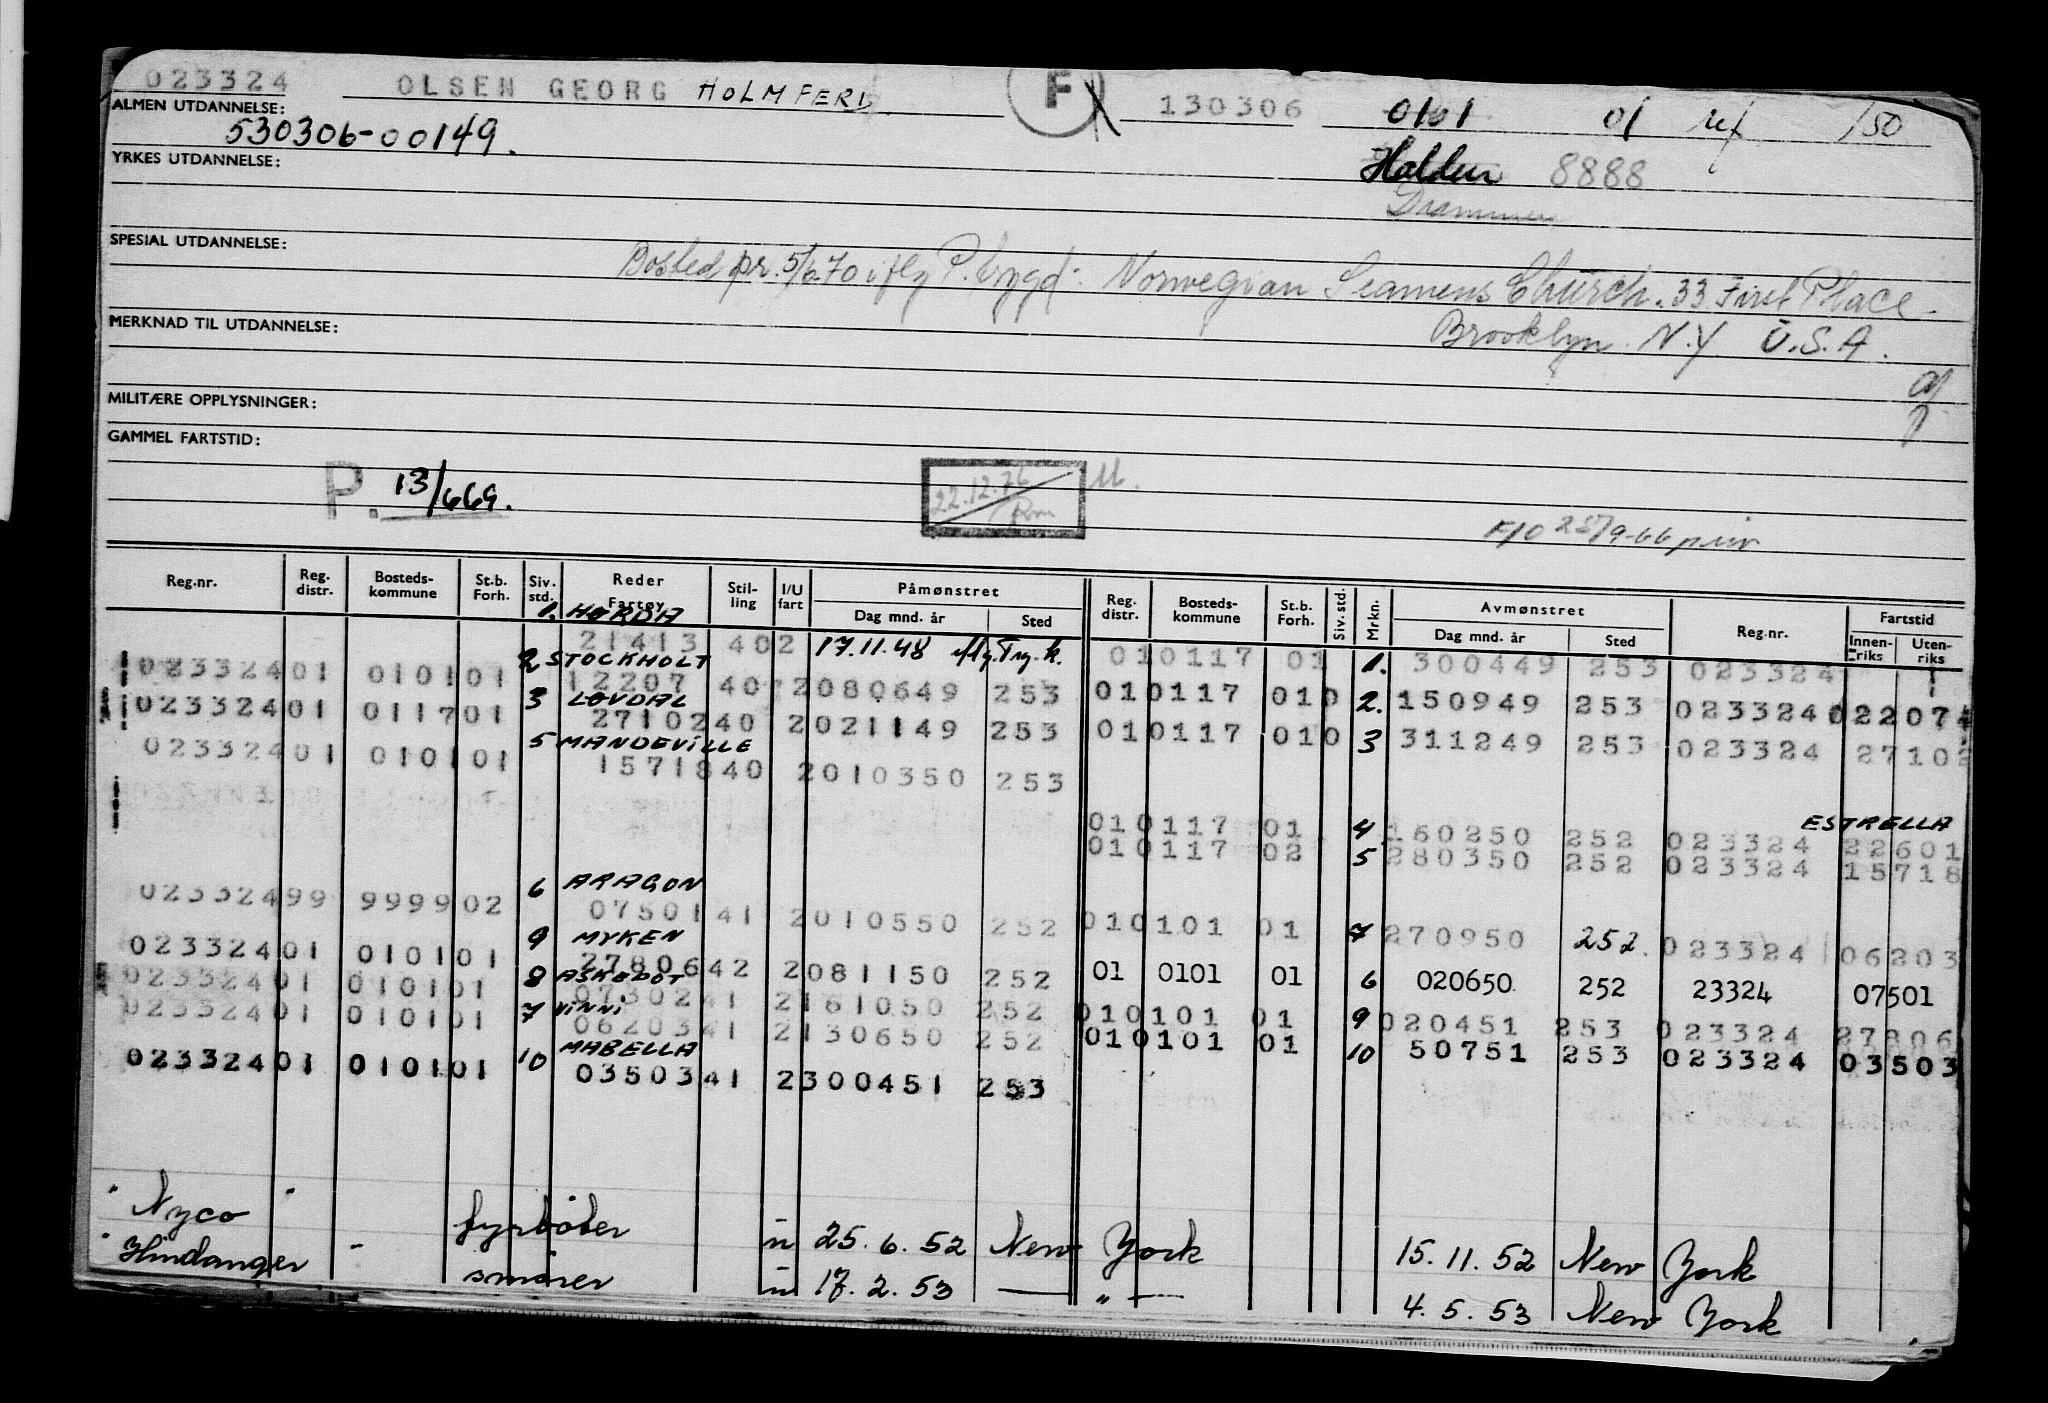 023324 OLSEN GEORG HOLMFERD. F 130306 0101 01 /50
ALMEN UTDANNELSE:
530306-00149.
YRKES UTDANNELSE: Halden 8888
Drammen
SPESIAL UTDANNELSE:
Bosted pr. 5/6.70 P. bygd: Norwegian Seamens Church. 33 First Place.
MERKNAD TIL UTDANNELSE: Brooklyn. N.Y. U.S.A.
MILITÆRE OPPLYSNINGER:
GAMMEL FARTSTID:
P. 13/669. 22.12.76 M.
Reg.nr. Reg. distr. Bosteds-kommune St.b. Forh. Siv. std. Reder Fartøy Stil-ling I/U fart Påmønstret Dag mnd. år Sted Reg. distr. Bosteds-kommune St.b. Forh. Siv. std. Mrkn. Avmønstret Dag mnd. år Sted Reg.nr. Fartstid Innen-riks Uten-riks
1. HØRDA
21413 402 17.11.48 010117 01 1. 300449 253 023324
2 STOCKHOLT
023324 01 0101 01 12207 40 2 080649 253 01 0117 010 2. 150949 253 023324 022074
3 LØVDAL
023324 01 0117 01 27102 40 2 021149 253 01 0117 010 3 311249 253 023324 27102
5 MANDEVILLE
023324 01 0101 01 15718 40 2 010350 253
ESTRELLA
01 0117 01 4 160250 252 023324 22601
01 0117 02 5 280350 252 023324 15718
6 ARAGON
023324 99 9999 02 07501 41 2 010550 252 01 0101 01 7 270950 252. 023324 06203
9 MYKEN
023324 01 0101 01 27806 42 2 081150 252 01 0101 01 6 020650 252 23324 07501
8 ASKEPOT
023324 01 0101 01 07302 41 2 161050 252 01 0101 01 9 020451 253 023324 27806
7 VINNI
023324 01 0101 01 06203 41 2 130650 252 01 0101 01 10 50751 253 023324 03503
10 MABELLA
023324 01 0101 01 03503 41 2 300451 253
" Nyco " fyrbøter u 25.6.52 New York 15.11.52 New York
" Hindanger " smører u 17.2.53 — " — 4.5.53 New York